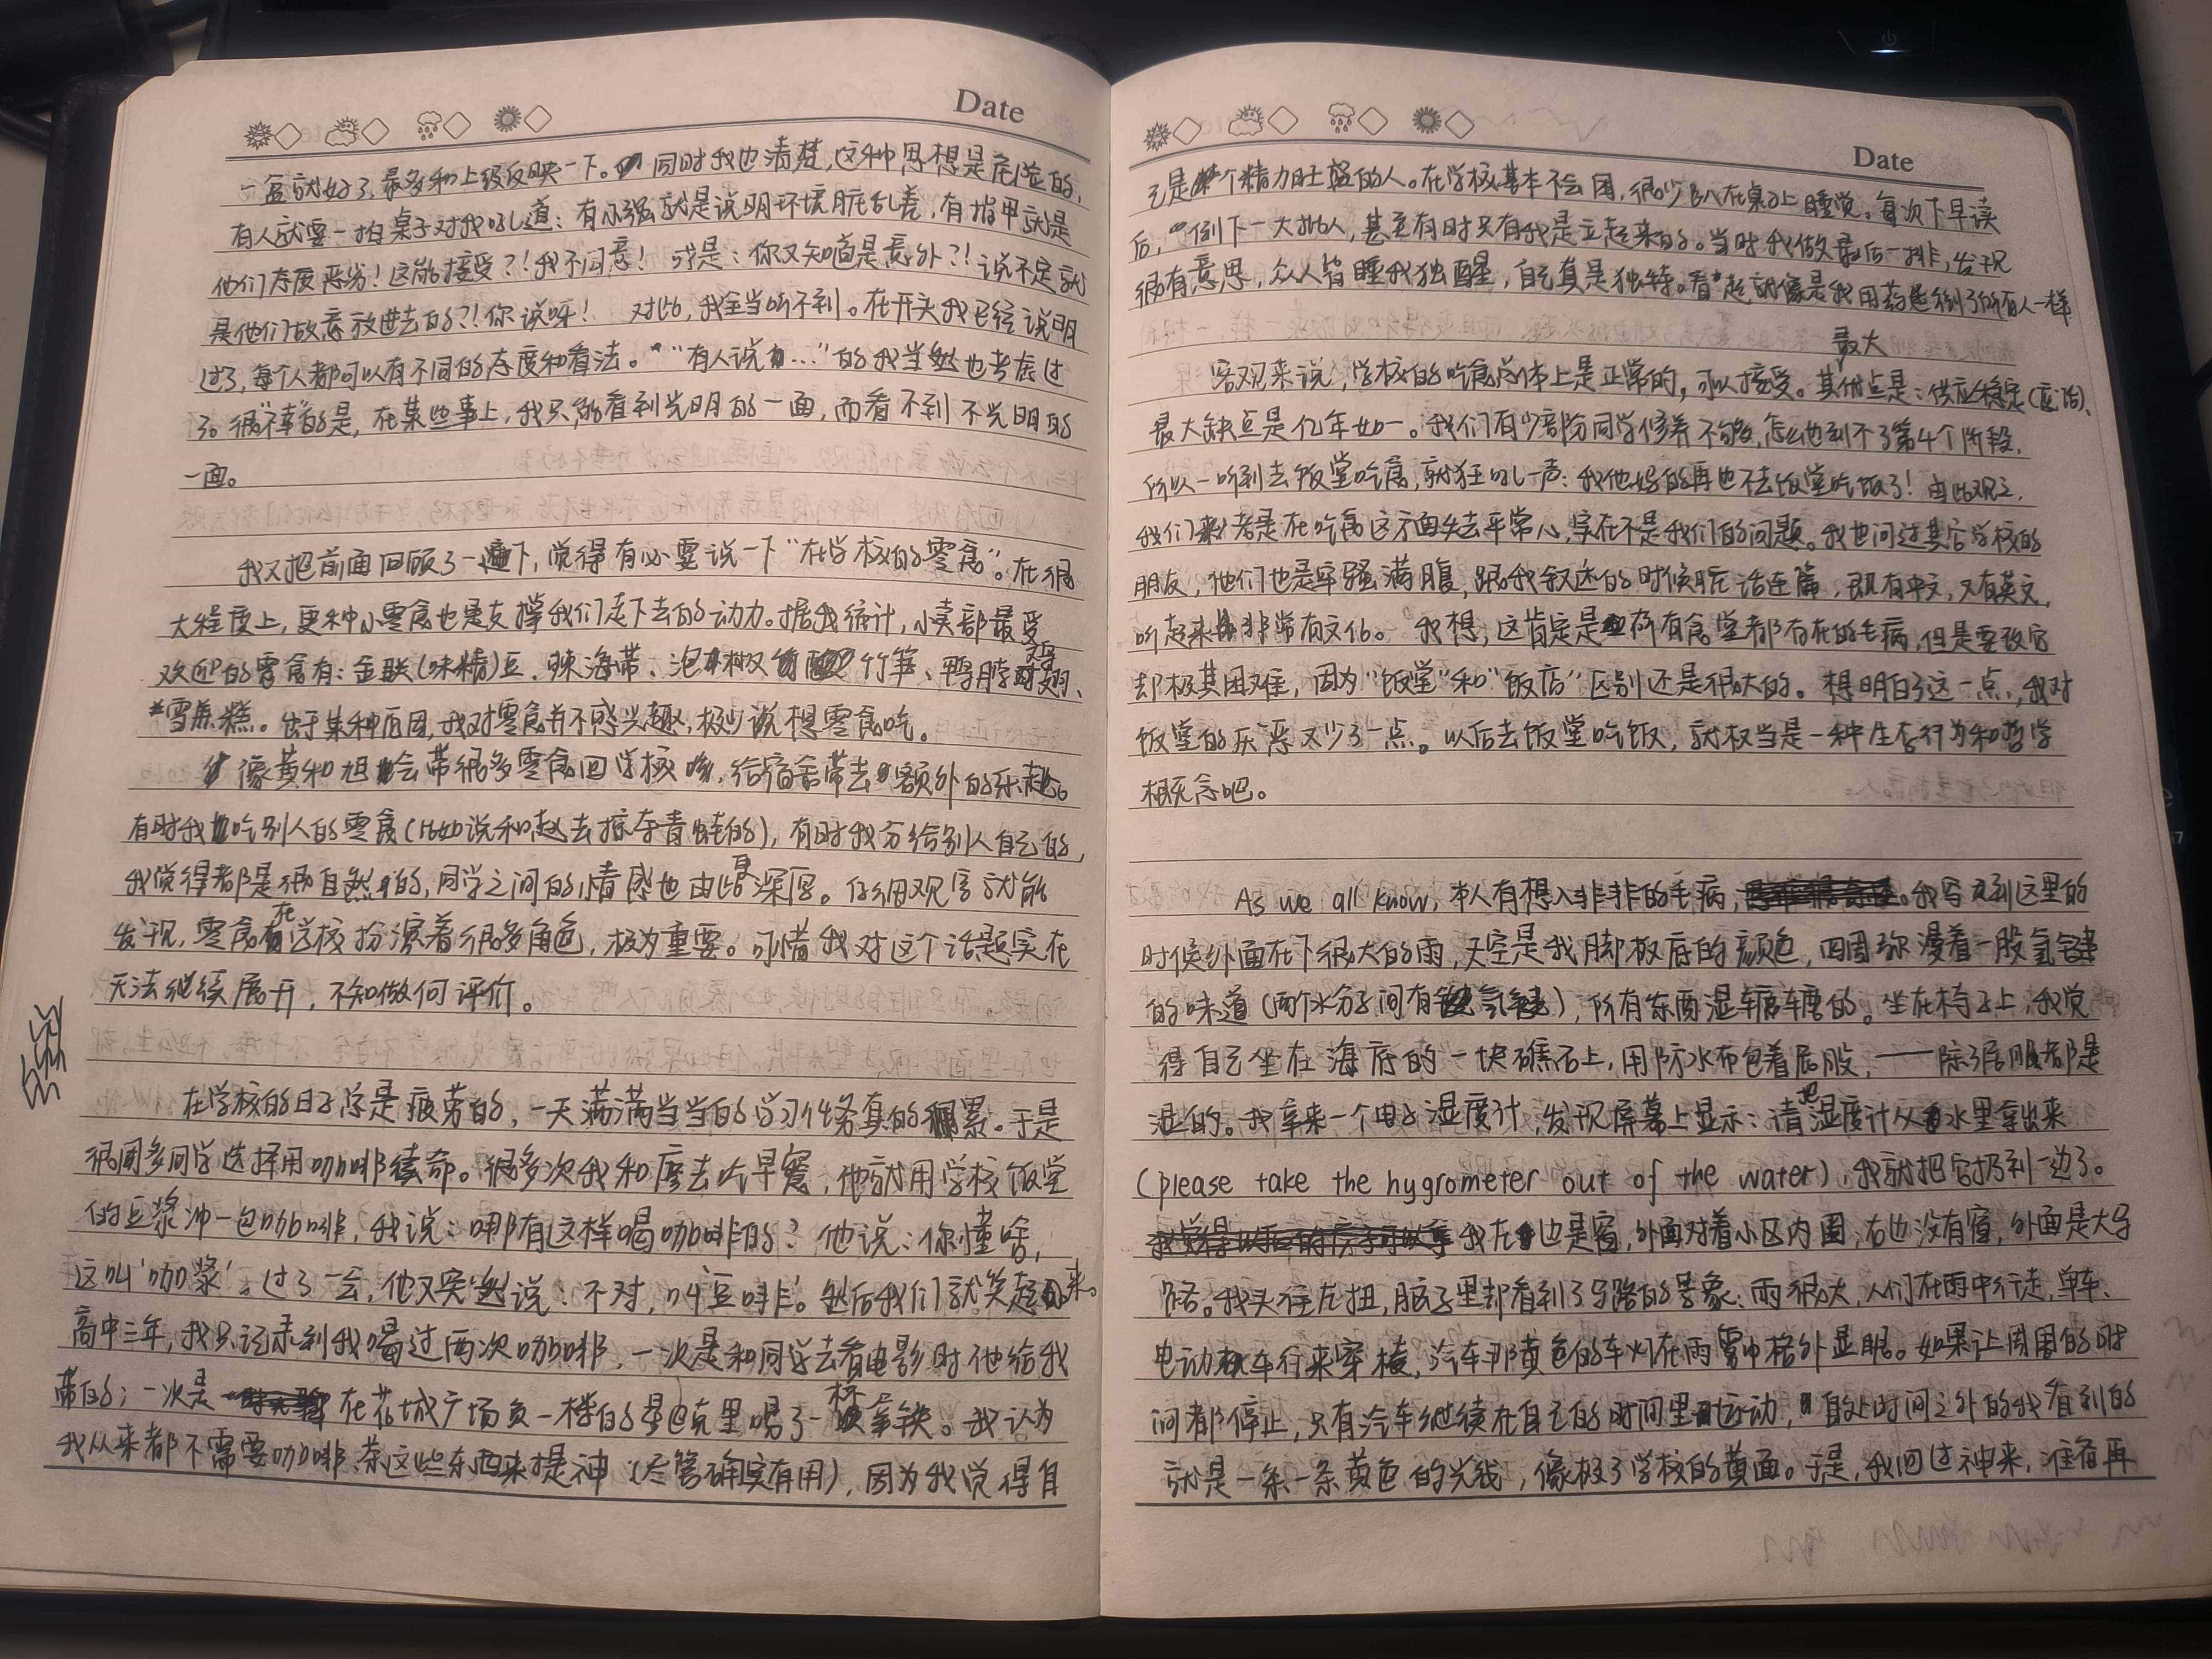 Date
一盒就好了，最多和上级反映一下。同时我也清楚，这种思想是危险的，
有人就要一拍桌子对我吼道：有小强就是说明环境脏乱差，有指甲就是
他们态度恶劣！这能接受？！我不同意！或是：你又知道是意外？！说不定就
是他们故意放进去的？！你说呀！ 对此，我全当听不到。在开头我已经说明
过了，每个人都可以有不同的态度和看法。“有人说…”的我当然也考虑过
了。很“不幸”的是，在某些事上，我只能看到光明的一面，而看不到不光明的
一面。
我又把前面回顾了一遍下，觉得有必要说一下“在学校的零食”。在很
大程度上，更种小零食也是支撑我们走下去的动力。据我统计，小卖部最受
欢迎的零食有：金联(味精)豆、辣海带、泡椒竹笋、鸭脖翅、
雪蕉糕。出于某种原因，我对零食并不感兴趣，极少说想零食吃。
像黄和旭会带很多零食回学校，给宿舍带去额外的乐趣。
有时我吃别人的零食(比如说和赵去掠夺青蛙的)，有时我分给别人自己的，
我觉得都是很自然的，同学之间的情感也由此更深厚。仔细观察就能
发现，零食在学校扮演着很多角色，极为重要。可惜我对这个话题实在
无法继续展开，不知做何评价。
在学校的日子总是疲劳的，一天满满当当的学习任务真的很累。于是
很多同学选择用咖啡续命。很多次我和摩去吃早餐，他就用学校饭堂
的豆浆冲一包咖啡，我说：哪有这样喝咖啡的？他说：你懂啥，
这叫‘咖浆’。过了一会，他又突然说：不对，叫‘豆啡’。然后我们就笑起来。
高中三年，我只记录到我喝过两次咖啡，一次是和同学去看电影时他给我
带的；一次是在花城广场负一楼的星巴克里喝了一杯拿铁。我认为
我从来都不需要咖啡、茶这些东西来提神（尽管确实有用），因为我觉得自
Date
己是个精力旺盛的人。在学校基本不会困，很少趴在桌子上睡觉。每次下早读
后，倒下一大批人，甚至有时只有我是立起来的。当时我做最后一排，发现
很有意思，众人皆睡我独醒，自己真是独特。看起就像是我用药迷倒了所有人一样
客观来说，学校的吃食总体上是正常的，可以接受。其最大优点是：供应稳定(应该)、
最大缺点是亿年如一。我们有少部份同学修养不够，怎么也到不了第4个阶段，
所以一听到去饭堂吃食，就狂吼一声：我他妈的再也不去饭堂吃饭了！由此观之，
我们若是在吃食这方面失去平常心，实在不是我们的问题。我也问过其它学校的
朋友，他们也是牢骚满腹，跟我叙述的时候脏话连篇，既有中文，又有英文，
听起来非常有文化。我想，这肯定是所有食堂都存在的毛病，但是要改它
却极其困难，因为“饭堂”和“饭店”区别还是很大的。想明白了这一点，我对
饭堂的厌恶又少了一点。以后去饭堂吃饭，就权当是一种生存行为和哲学
概念吧。
As we all know, 本人有想入非非的毛病，。我写到这里的
时候外面在下很大的雨，天空是我脚板底的颜色，四周弥漫着一股氢键
的味道（两个水分子间有氢键），所有东西湿辘辘的。坐在椅子上，我觉
得自己坐在海底的一块礁石上，用防水布包着屁股，——除了屁股都是
湿的。我拿来一个电子湿度计，发现屏幕上显示：请把湿度计从水里拿出来
(please take the hygrometer out of the water)，我就把它扔到一边了。
我左边是窗，外面对着小区内围，右边没有窗，外面是大马
路。我头往左扭，脑子里却看到了马路的景象：雨很大，人们在雨中行走，单车、
电动车行来穿梭，汽车那黄色的车灯在雨雾中格外显眼。如果让周围的时
间都停止，只有汽车继续在自己的时间里运动，自处时间之外的我看到的
就是一条一条黄色的光线，像极了学校的黄面。于是，我回过神来，准备再